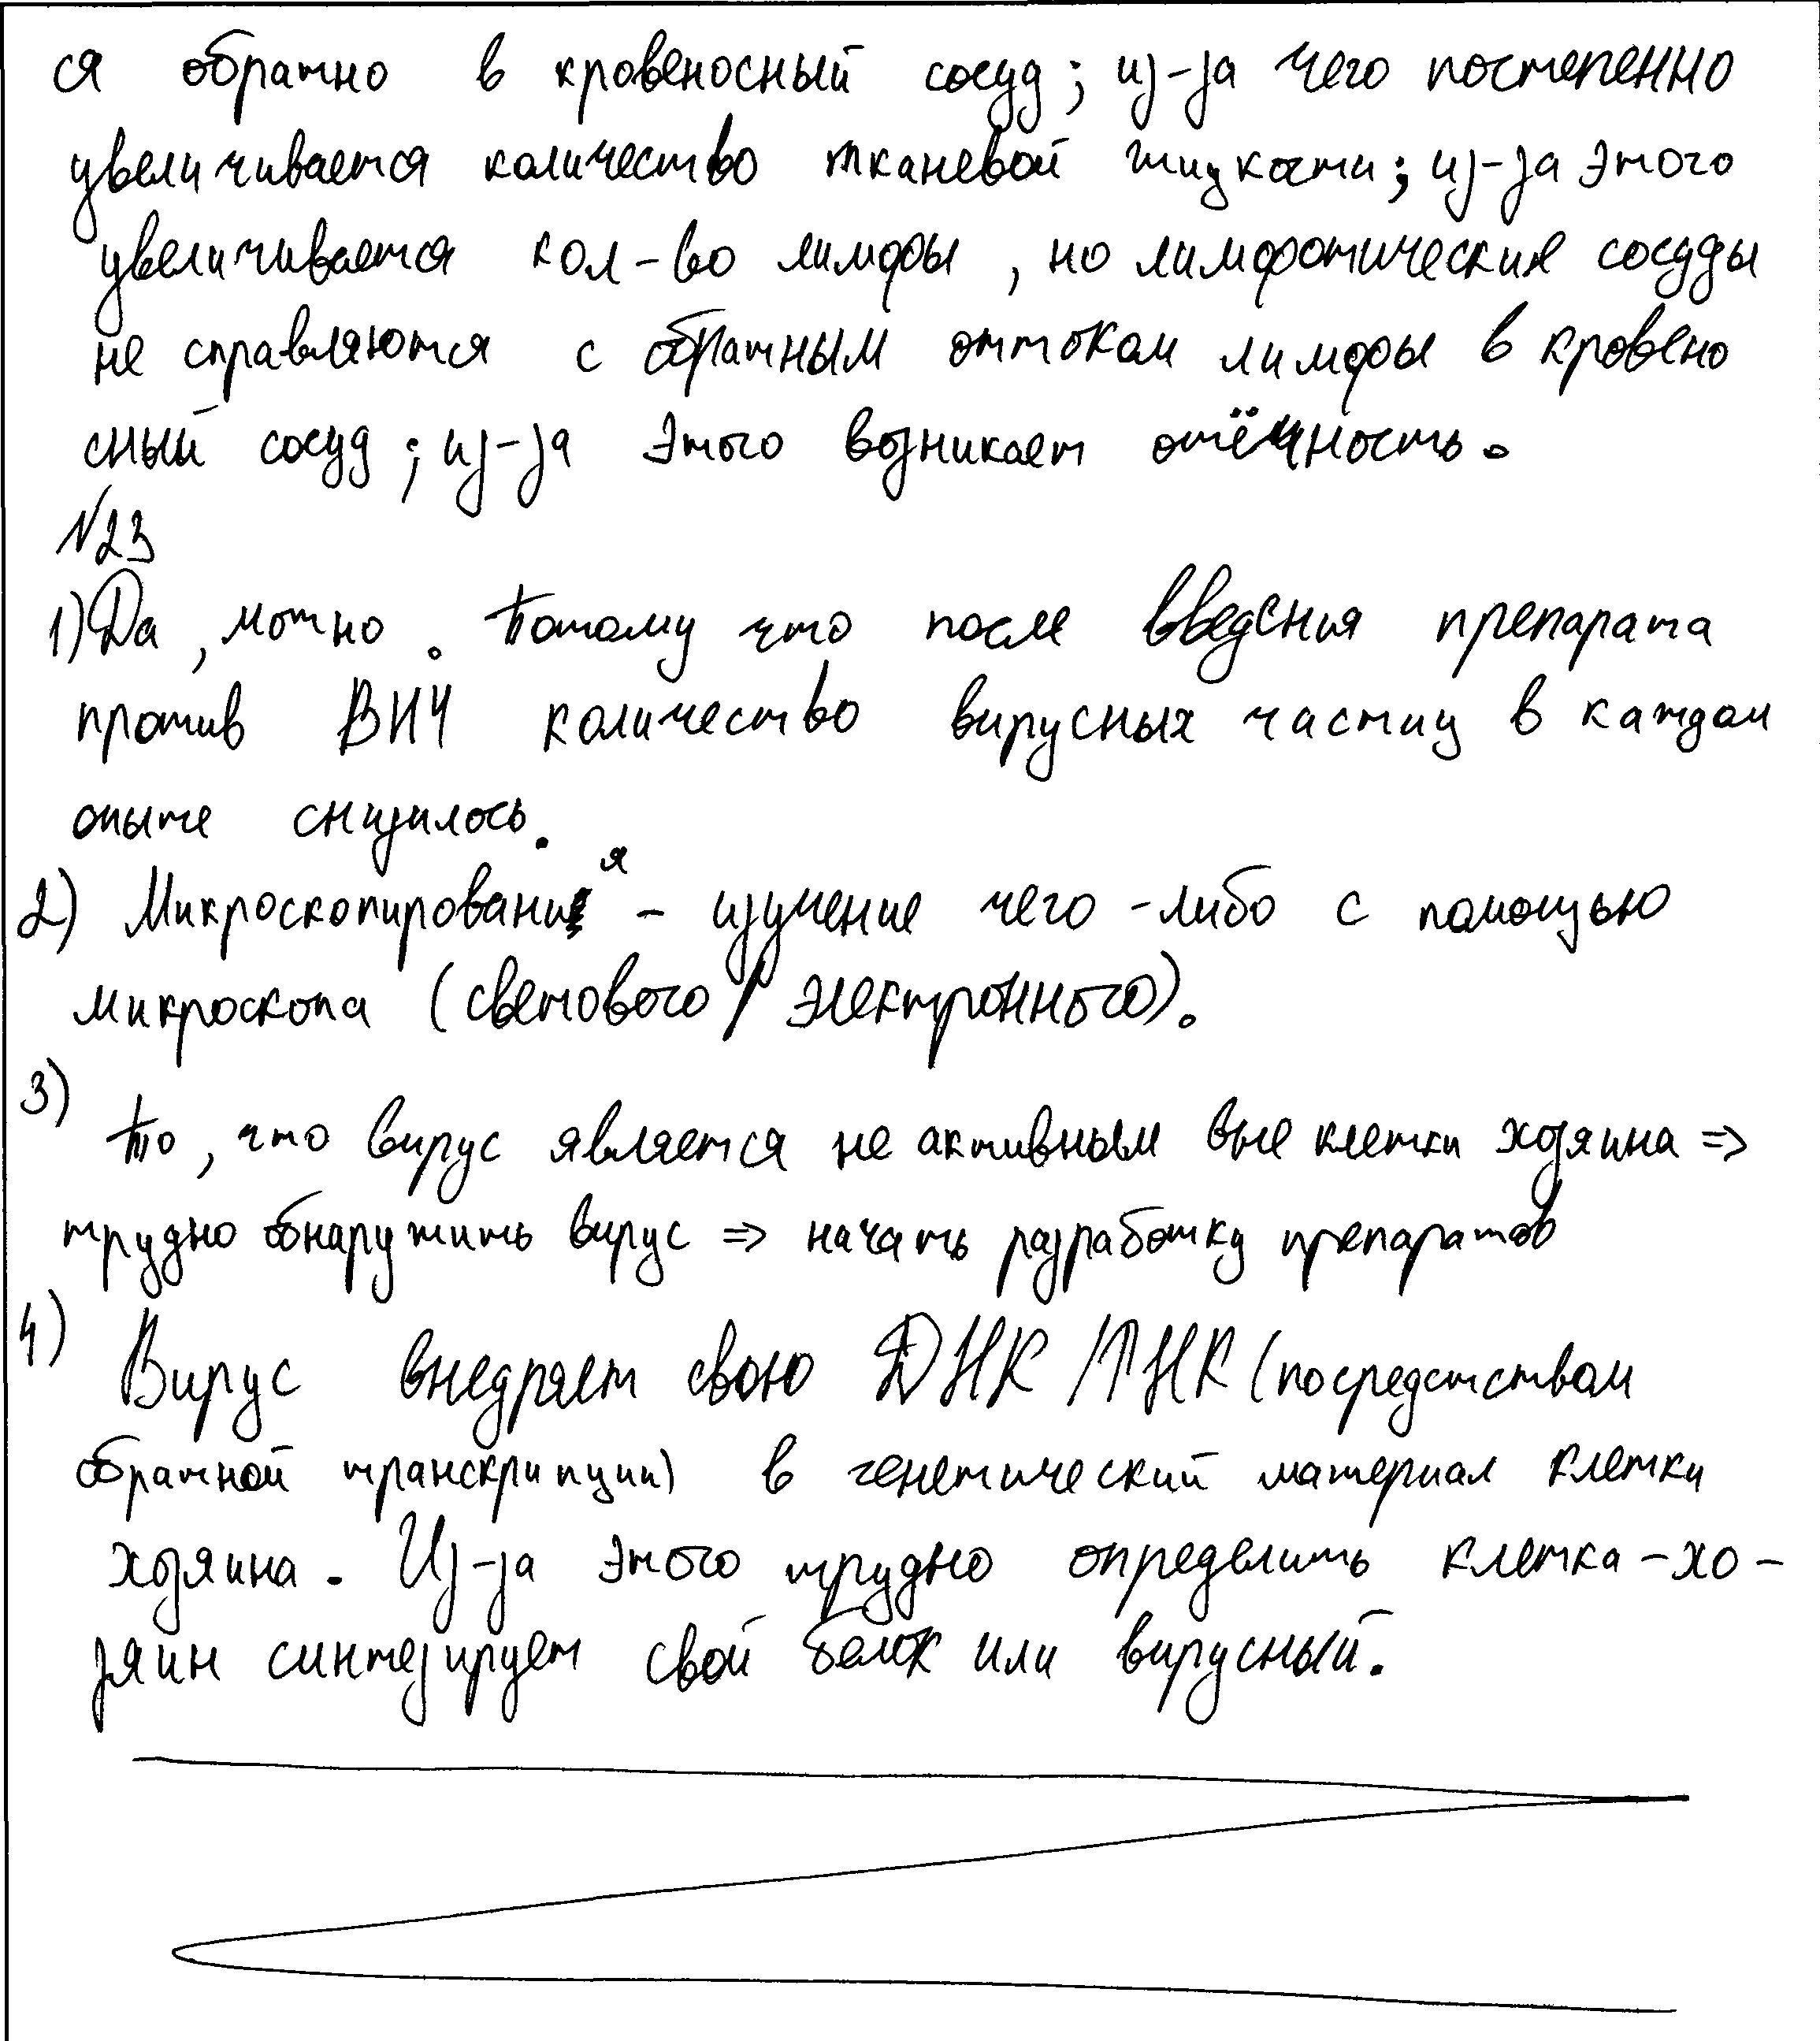 ся обратно в кровеносный сосуд; из-за чего постепенно
увеличивается количество тканевой жидкости; из-за этого
увеличивается кол-во лимфы, но лимфотические сосуды
не справляются с обратным оттоком лимфы в кровено
сный сосуд; из-за этого возникает отёчность.
№23
1) Да, можно. Потому что после введения препарата
против ВИЧ количество вирусных частиц в каждом
опыте снизилось.
2) Микроскопирования - изучение чего-либо с помощью
микроскопа (светового / электронного).
3) То, что вирус является не активным вне клетки хозяина =>
трудно обнаружить вирус => начать разработку препаратов
4) Вирус внедряет свою ДНК/РНК (посредством
обратной транскрипции) в генетический материал клетки
хозяина. Из-за этого трудно определить клетка-хо-
зяин синтезирует свой белок или вирусный.